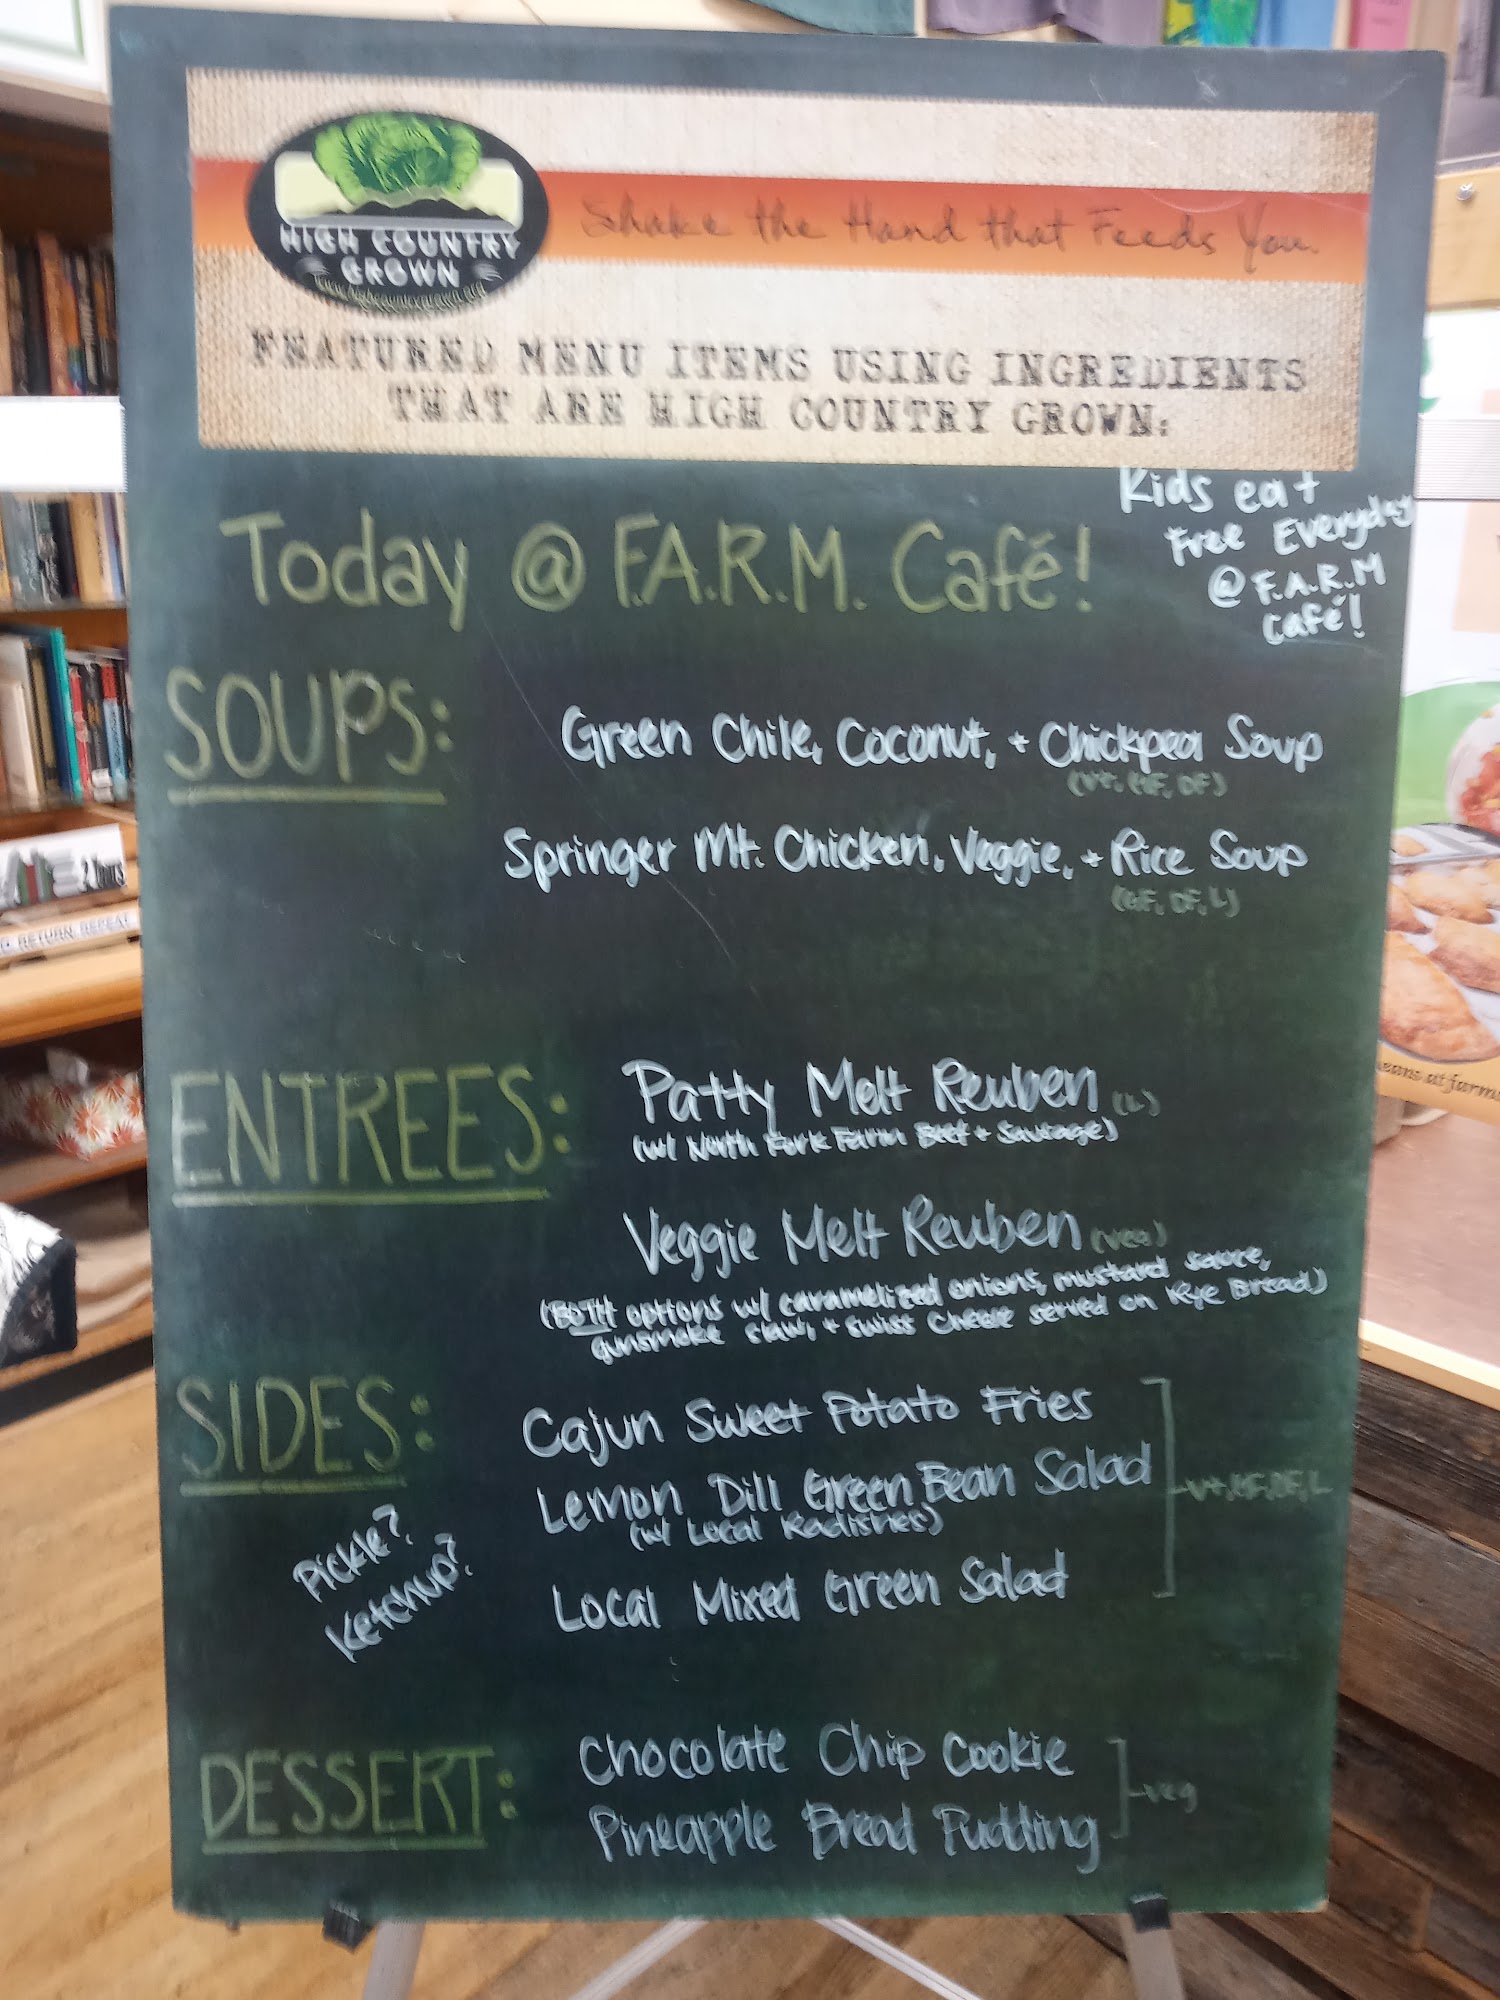 HIGH COUNTRY
GROWN
www.highcountrygrown.org
Shake the Hand that Feeds You.
FEATURED MENU ITEMS USING INGREDIENTS
THAT ARE HIGH COUNTRY GROWN:
Kids eat
free Everyday
@ F.A.R.M
Café!
Today @ F.A.R.M. Café!
SOUPS:
Green Chile, Coconut, + Chickpea Soup
(V+, GF, DF)
Springer Mt. Chicken, Veggie, + Rice Soup
(GF, DF, L)
ENTREES:
Patty Melt Reuben (L)
(w/ North Fork Farm Beef + Sausage)
Veggie Melt Reuben (veg)
(BOTH options w/ caramelized onions, mustard sauce,
gunsmoke slaw, + swiss cheese served on Rye Bread)
SIDES:
Cajun Sweet Potato Fries
Lemon Dill Green Bean Salad
(w/ Local Radishes)
Local Mixed Green Salad
V+, GF, DF, L
Pickle?
Ketchup?
DESSERT:
Chocolate Chip Cookie
Pineapple Bread Pudding
veg
RETURN. REPEAT
eans at farms